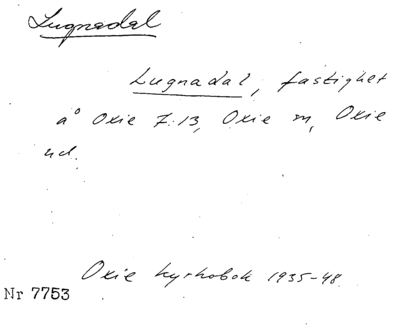 Lugnadal
Lugnadal, fastighet
å Oxie 7:13, Oxie sn, Oxie
hd.
Oxie kyrkobok 1935-48
Nr 7753